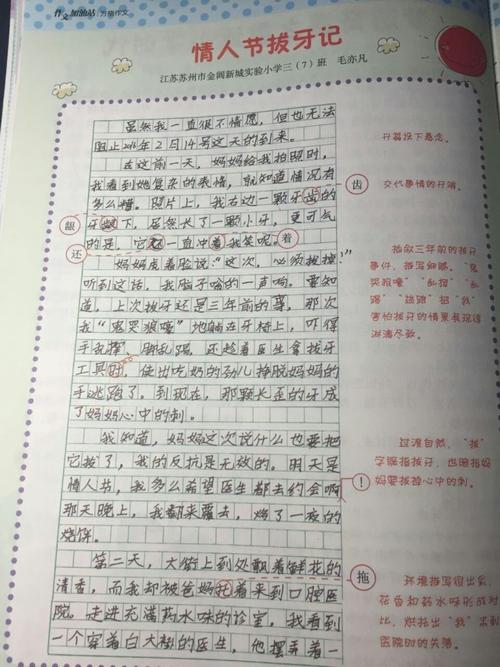 作文加油站 方格作文
情人节拔牙记
江苏苏州市金阊新城实验小学三（7）班 毛亦凡
虽然我一直很不情愿，但也无法
阻止2016年2月14号这天的到来。
在这前一天，妈妈给我拍照时，
我看到她复杂的表情，就知道情况有
多么糟。照片上，我右边一颗牙齿的
牙龈下，居然长了一颗小牙，更可气
的是，它还一直冲着我笑呢。
妈妈虎着脸说："这次，必须拔掉！"
听到这话，我脑子嗡的一声响。要知
道，上次拔牙还是三年前的事，那次
我"鬼哭狼嚎"地躺在牙椅上，吓得
手乱挥、脚乱踢，还趁着医生拿拔牙
工具时，使出吃奶的劲儿挣脱妈妈的
手逃跑了。到现在，那颗长歪的牙成
了妈妈心中的刺。
我知道，妈妈这次说什么也要把
它拔了，我的反抗是无效的。明天是
情人节，我多么希望医生都去约会啊！
那天晚上，我翻来覆去，烙了一夜的
烧饼。
第二天，大街上到处飘着鲜花的
清香，而我却被爸妈拖着来到口腔医
院。走进充满药水味的诊室，我看到
一个穿着白大褂的医生，他摆弄着一
齿
龈
还
着
！
拖
开篇埋下悬念。
交代事情的开端。
描叙三年前的拔牙
事件，描写细腻。"鬼
哭狼嚎""乱挥""乱
踢""逃跑"把"我"
害怕拔牙的情景展现得
淋漓尽致。
过渡自然，"拔"
字既指拔牙，也暗指妈
妈要拔掉心中的刺。
环境描写很出彩，
花香和药水味形成对
比，烘托出"我"来到
医院时的失落。